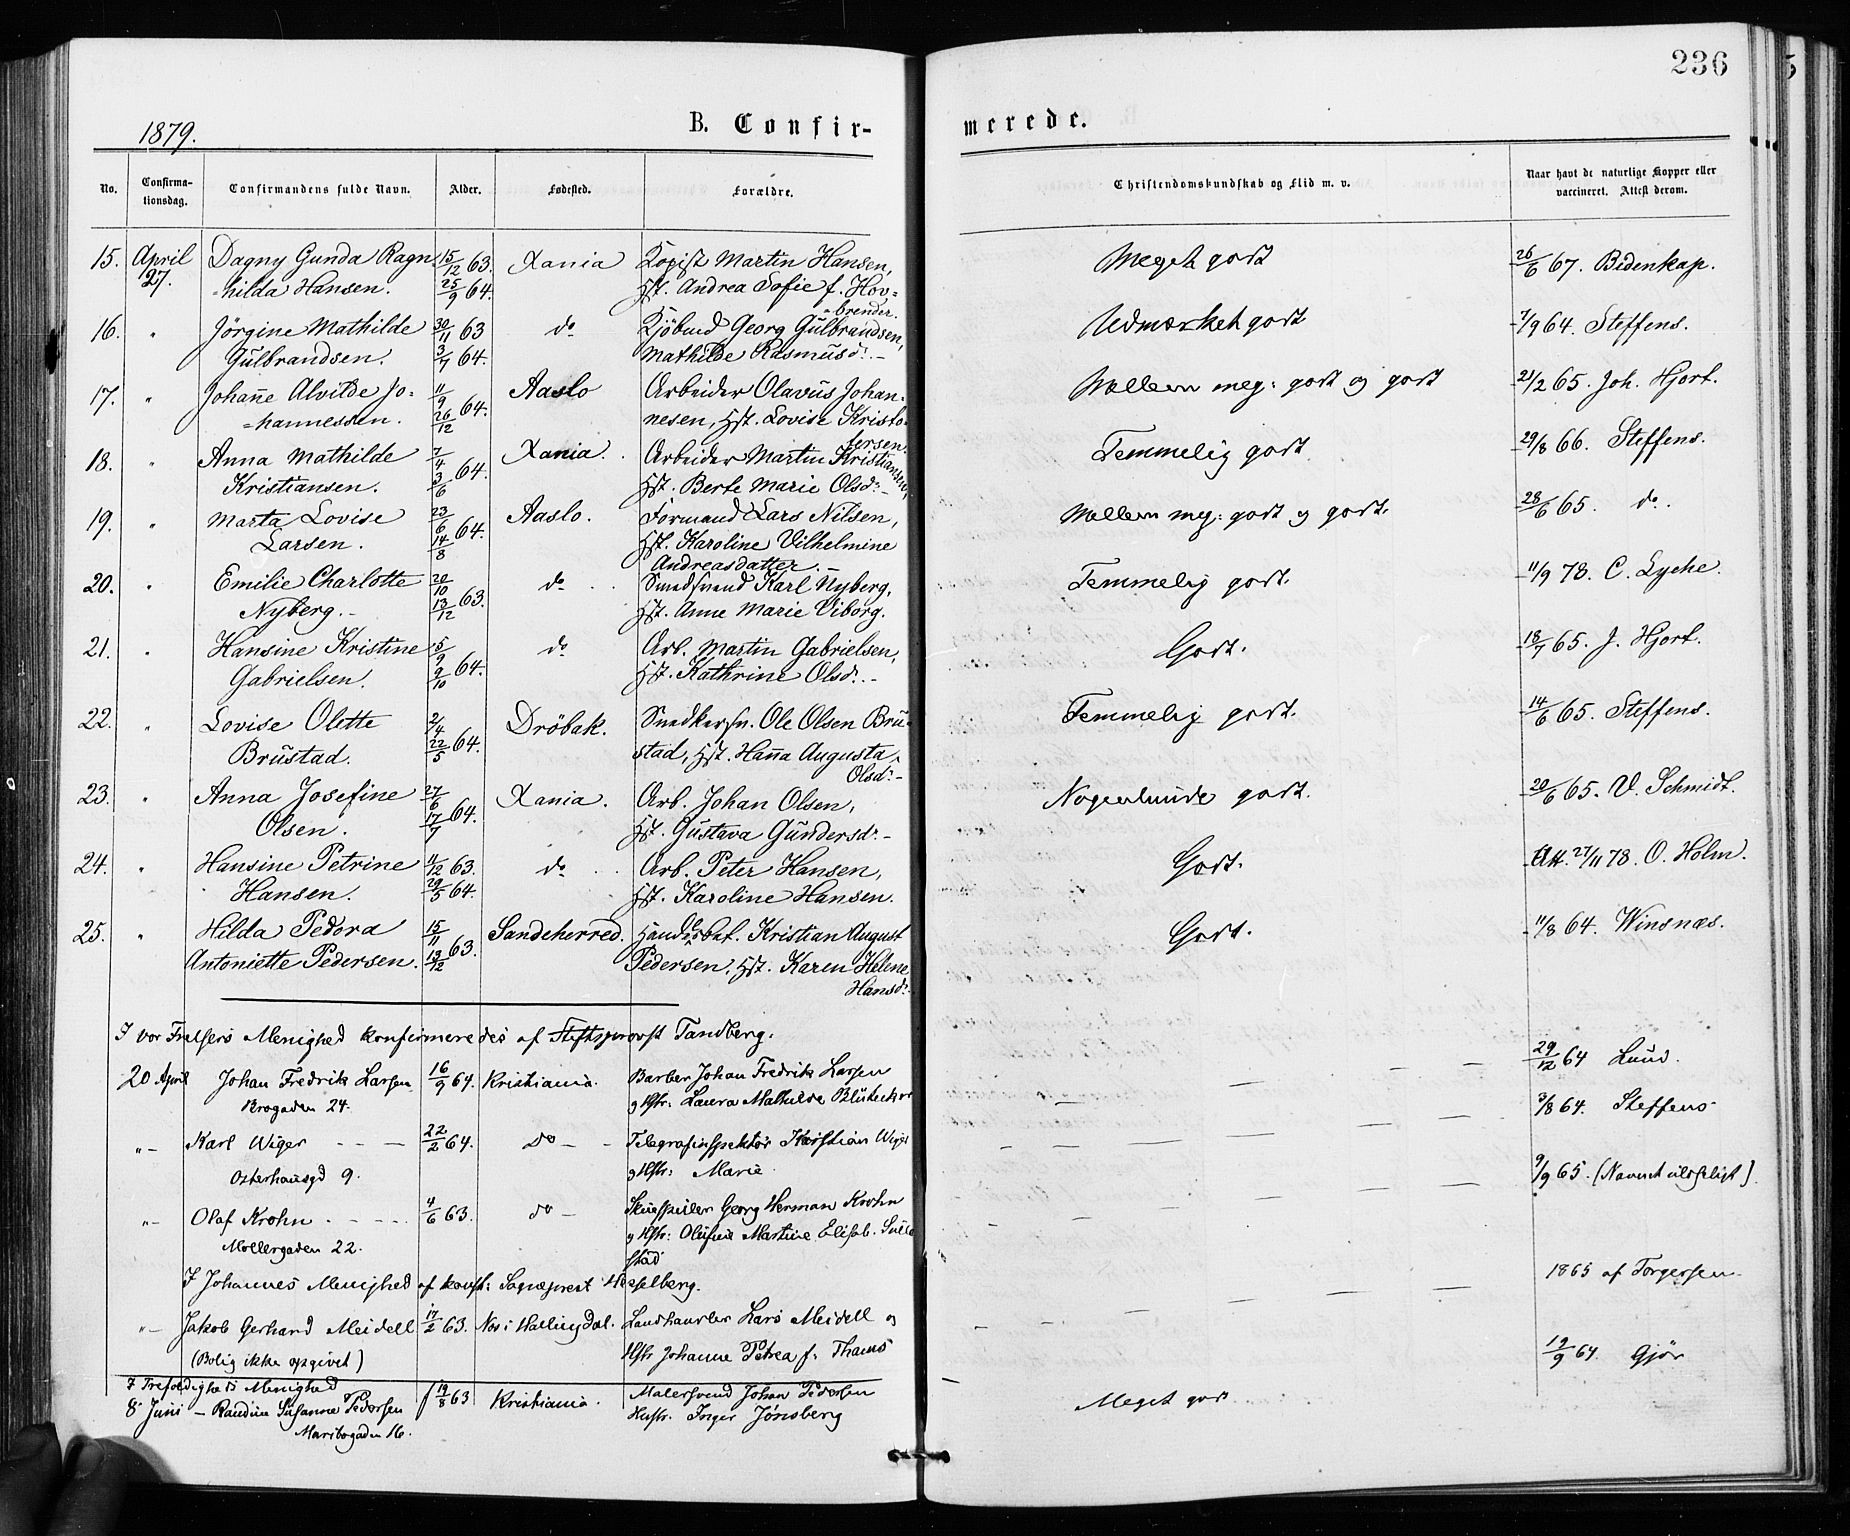 236
1879.
B. Confir-
merede.
No.
Confirma-
tionsdag.
Confirmandens fulde Navn.
Alder.
Fødested.
Forældre.
Christendomskundskab og Flid m. v.
Naar havt de naturlige Kopper eller
vaccineret. Attest derom.
15. April Dagny Gunda Ragn 15/12 63. Xania Kopist Martin Hansen, Meget godt 26/6 67. Bidenkap.
27. =hilda Hansen. 25/9 64. Hst. Andrea Sofie f. Hov=
=brender.
16. " Jörgine Mathilde 30/11 63 do Kjöbmd Georg Gülbrandsen, Udmærket godt 7/9 64. Steffens.
Gülbrandsen. 3/7 64. Mathilde Rasmusdr. –
17. " Johañe Alvilde Jo= 11/9 64. Aaslo Arbeider Olavüs Johan- Mellem meg: godt og godt 21/2 65. Joh. Hjort.
=hannessen. 26/12 nesen, Hst. Lovise Kristo=
fersen.
18. " Anna Mathilde 7/4 64. Xania. Arbeider Martin Kristiansen, Temmelig godt 29/8 66. Steffens.
Kristiansen. 3/6 Hst. Berte Marie Olsdr. –
19. " Marta Lovise 23/6 64. Aaslo. Formand Lars Nilsen, Mellem meg: godt og godt. 28/6 65. do.
Larsen. 14/8 Hst. Karoline Vilhelmine
Andreasdatter. –
20. " Emilie Charlotte 20/10 63. do Smedsvend Karl Nyberg, Temmelig godt. 11/9 78. C. Lyche.
Nyberg. – 13/12 Hst. Anne Marie Viborg.
21. " Hansine Kristine 5/9 64. do Arb. Martin Gabrielsen, Godt. 18/7 65. J. Hjort.
Gabrielsen. 9/10 Hst. Kathrine Olsdr. –
22. " Lovise Olette 2/4 64. Dröbak. Snedkersv. Ole Olsen Brü= Temmelig godt. 14/6 65. Steffens.
Brüstad. 22/5 stad, Hst. Hañna Augusta
Olsdr. –
23. " Anna Josefine 27/6 64. Xania. Arb. Johan Olsen, Nogenlunde godt. 20/6 65. V. Schmidt.
Olsen. 17/7 Hst. Gustava Gundersdr. –
24. " Hansine Petrine 1/12 63. do Arb. Peter Hansen, Godt. Att. 27/11 78. O. Holm.
Hansen. 29/5 64. Hst. Karoline Hansen.
25. " Hilda Pedora 15/11 63. Sandeherred. Handelsbet. Kristian August Godt. 11/8 64. Winsnæs.
Antoniette Pedersen. 13/12 Pedersen, Hst. Karen Helene
Hansdr.
I vor Frelsers Menighed konfirmeredes af Stiftsprovst Tandberg.
20 April Johan Fredrik Larsen 16/9 64. Kristiania. Barber Johan Fredrik Larsen 29/12 64 Lund.
Brogaden 24. og Hstr: Laura Mathilde
"– Karl Wiger 22/2 64. do – Telegrafinspektör Kristian Wiger 3/8 64. Steffens
Osterhausgd 9. og Hstr: Marie
"– Olaf Krohn 4/6 63. do – Skuespiller Georg Herman Krohn 9/9 65. (Navnet utydeligt)
Møllergaden 22. og Hstr: Olüfine Martine Elisab.
stad
I Johannes Menighed af konst: Sogneprest Hesselberg. 1865 af Torgersen
"– Jakob Gerhard Meidell 17/2 63. Nes i Hallingdal. Landhandler Lars Meidell og
(Bolig ikke opgivet) Hstr Johanne Petrea f. Thams 12/9 64. Gjör
I Trefoldigheds Menighed
8 Juni – Randine Susanne Pedersen f 19/8 63 Kristiania. Malersvend Johan Pedersen Meget godt
Maribogaden 16. Hustr. Inger Jönsberg